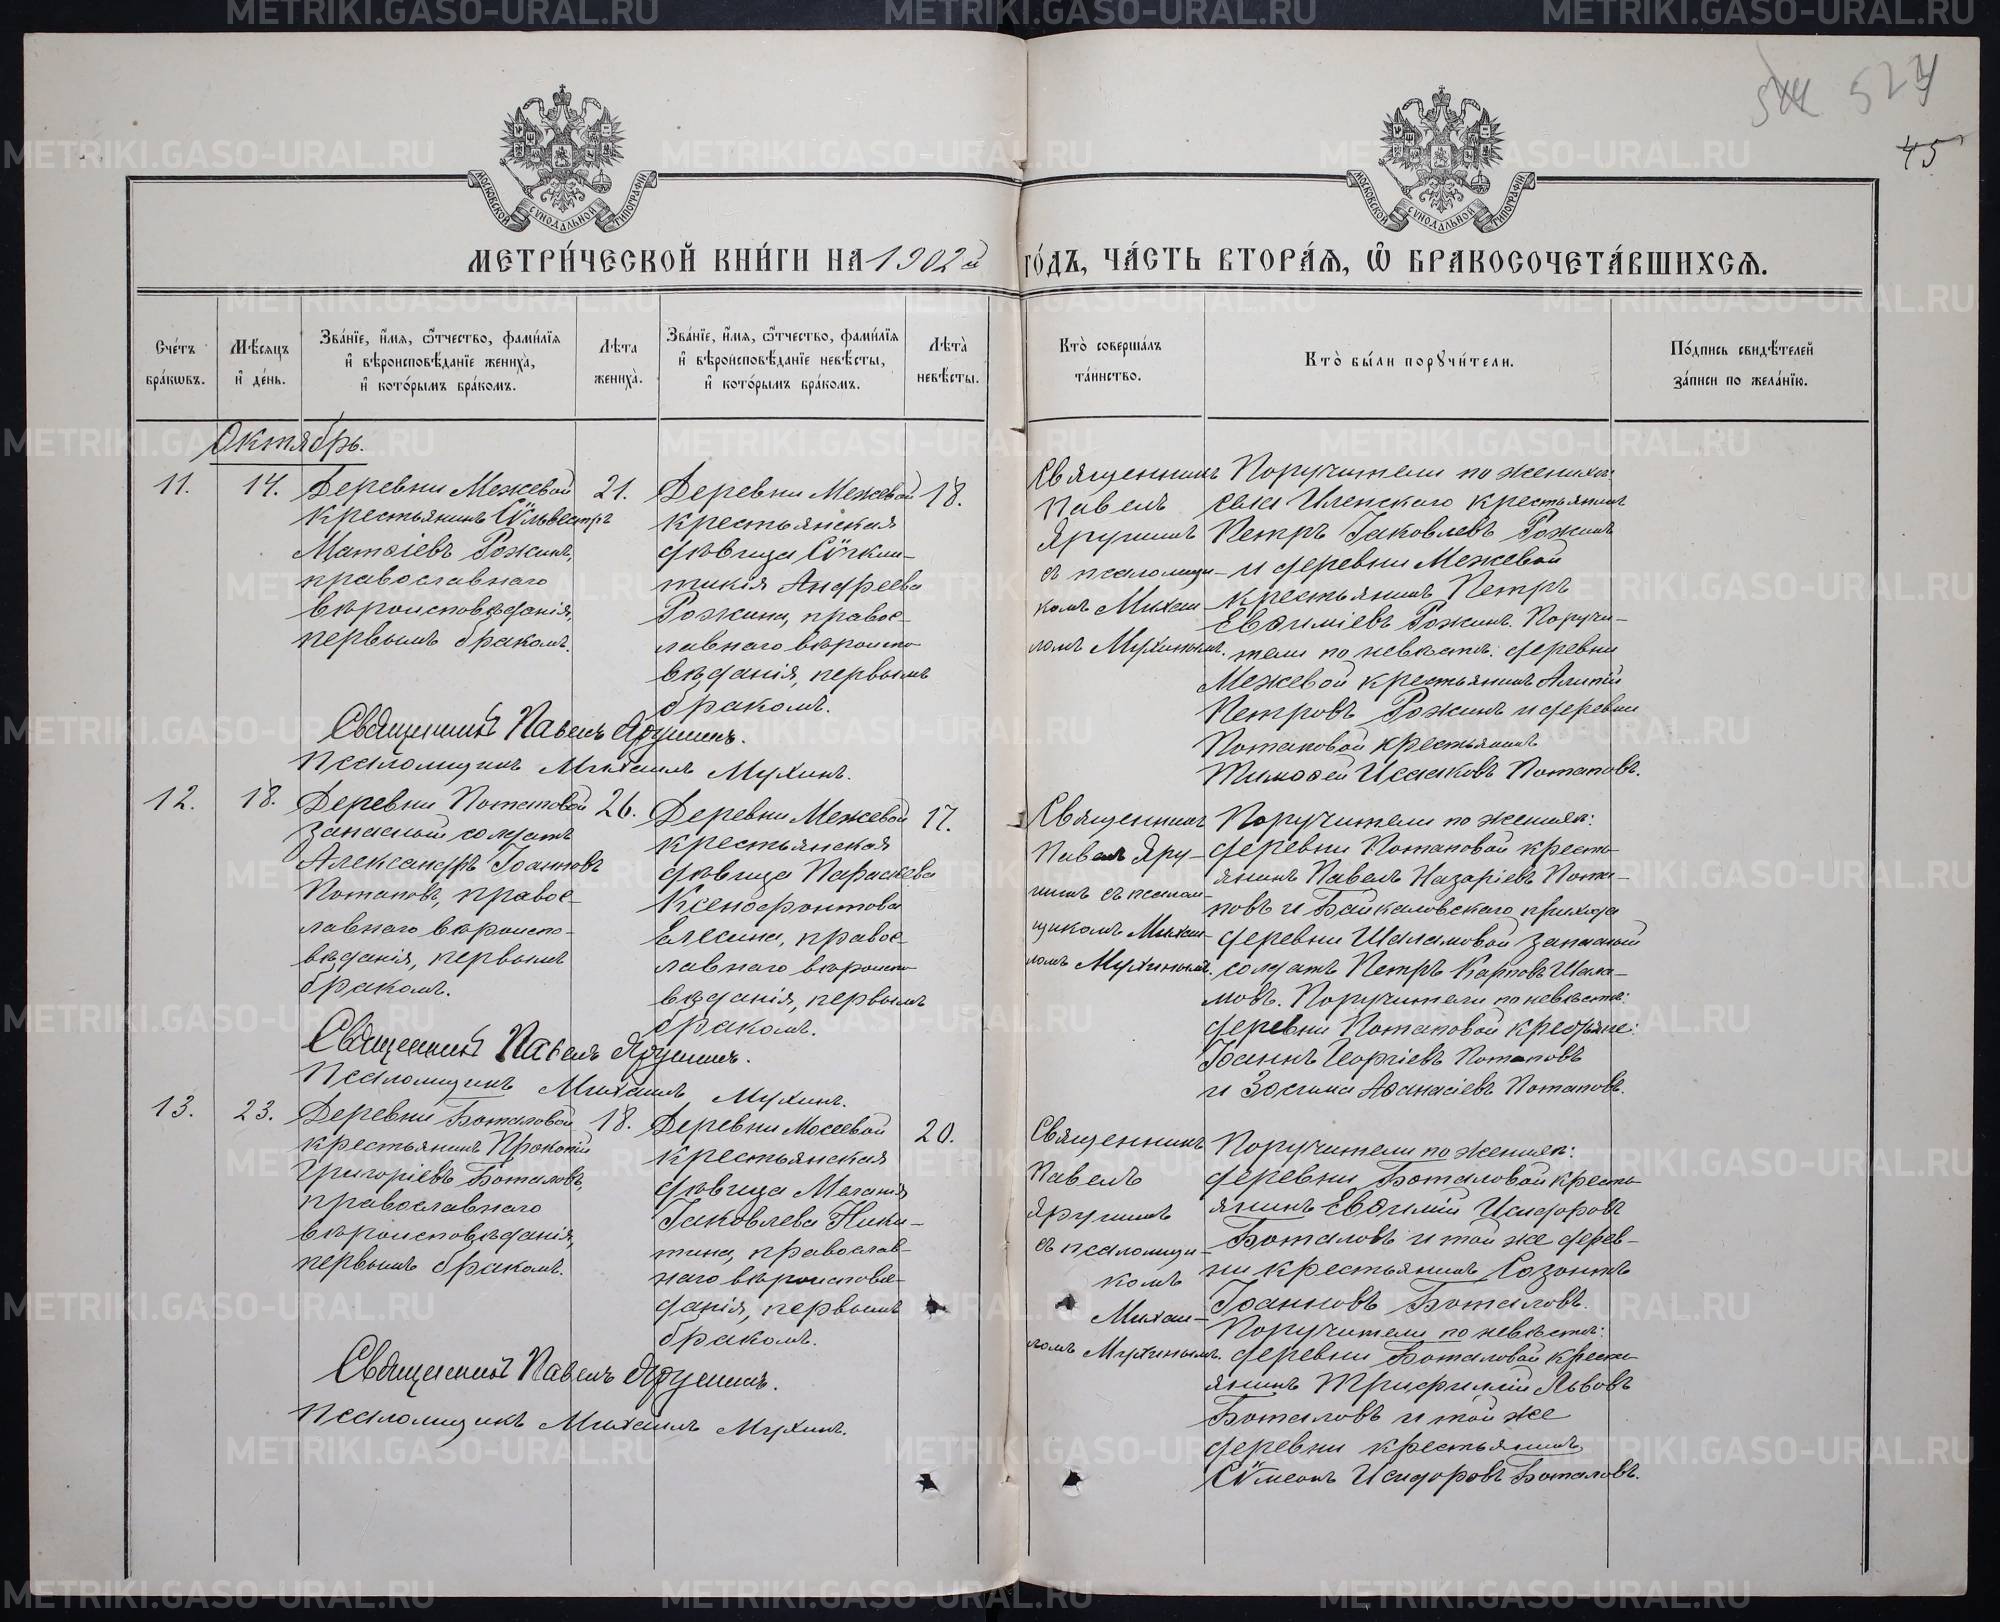 527
45
МОСКОВСКОЙ СѴНОДАЛЬНОЙ ТИПОГРАФІИ
МОСКОВСКОЙ СѴНОДАЛЬНОЙ ТИПОГРАФІИ
МЕТРИ́ЧЕСКОЙ КНИ́ГИ НА 1902й ГО́ДЪ, ЧА́СТЬ ВТОРА́Я, Ѿ БРАКОСОЧЕТА́ВШИХСЯ.
Сче́тъ бра́кѡвъ.
Мѣ́сяцъ и҆ де́нь.
Зва́нїе, и҆́мя, ѻ҆́тчество, фами́лїя и҆ вѣроисповѣ́данїе жениха̀, и҆ кото́рымъ бра́комъ.
Лѣ́та жениха̀.
Зва́нїе, и҆́мя, ѻ҆́тчество, фами́лїя и҆ вѣроисповѣ́данїе невѣ́сты, и҆ кото́рымъ бра́комъ.
Лѣ́та невѣ́сты.
Кто̀ соверша́лъ та́инство.
Кто̀ бы́ли порꙋчи́тели.
По́дпись свидѣ́телей за́писи по жела́нїю.
Октябрь.
11.
14.
Деревни Межевой
крестьянинъ Сѵльвестръ
Матѳіевъ Рожинъ,
православнаго
вѣроисповѣданія,
первымъ бракомъ.
21.
Деревни Межевой
крестьянская
дѣвица Сѵнкли-
тикія Андреева
Рожина, правос-
лавнаго вѣроиспо
вѣданія, первымъ
бракомъ.
18.
Священникъ
Павелъ
Ярушинъ
съ псаломщи-
комъ Михаи-
ломъ Мухинымъ.
Поручители по женихѣ:
села Иленскаго крестьянинъ
Петръ Іаковлевъ Рожинъ
и деревни Межевой
крестьянинъ Петръ
Евѳиміевъ Рожинъ. Поручи-
тели по невѣстѣ: деревни
Межевой крестьянинъ Алипій
Петровъ Рожинъ и деревни
Потаповой крестьянинъ
Тимоѳей Исааковъ Потаповъ.
Священникъ Павелъ Ярушинъ.
Псаломщикъ Михаилъ Мухинъ.
12.
18.
Деревни Потаповой
запасный солдатъ
Александръ Іоанновъ
Потаповъ, правос-
лавнаго вѣроиспо-
вѣданія, первымъ
бракомъ.
26.
Деревни Межевой
крестьянская
дѣвица Параскева
Ксенофонтова
Елесина, правос-
лавнаго вѣроиспо
вѣданія, первымъ
бракомъ.
17.
Священникъ
Павелъ Яру-
шинъ съ псалом-
щикомъ Михаи-
ломъ Мухинымъ.
Поручители по женихѣ:
деревни Потаповой кресть-
янинъ Павелъ Назаріевъ Пота-
повъ и Байкаловскаго прихода
деревни Шаламовой запасный
солдатъ Петръ Карповъ Шала-
мовъ. Поручители по невѣстѣ:
деревни Потаповой крестьяне:
Іоаннъ Георгіевъ Потаповъ
и Зосима Аѳанасіевъ Потаповъ.
Священникъ Павелъ Ярушинъ.
Псаломщикъ Михаилъ Мухинъ.
13.
23.
Деревни Боталовой
крестьянинъ Прокопій
Григоріевъ Боталовъ,
православнаго
вѣроисповѣданія,
первымъ бракомъ.
18.
Деревни Мосеевой
крестьянская
дѣвица Меланія
Іаковлева Ники-
тина, православ-
наго вѣроисповѣ-
данія, первымъ
бракомъ.
20.
Священникъ
Павелъ
Ярушинъ
съ псаломщи-
комъ
Михаи-
ломъ Мухинымъ.
Поручители по женихѣ:
деревни Боталовой кресть-
янинъ Евѳимій Исидоровъ
Боталовъ и той же дерев-
ни крестьянинъ Созонтъ
Іоанновъ Боталовъ.
Поручители по невѣстѣ:
деревни Боталовой кресть-
янинъ Трифиллій Львовъ
Боталовъ и той же
деревни крестьянинъ
Сѵмеонъ Исидоровъ Боталовъ.
Священникъ Павелъ Ярушинъ.
Псаломщикъ Михаилъ Мухинъ.
METRIKI.GASO-URAL.RU